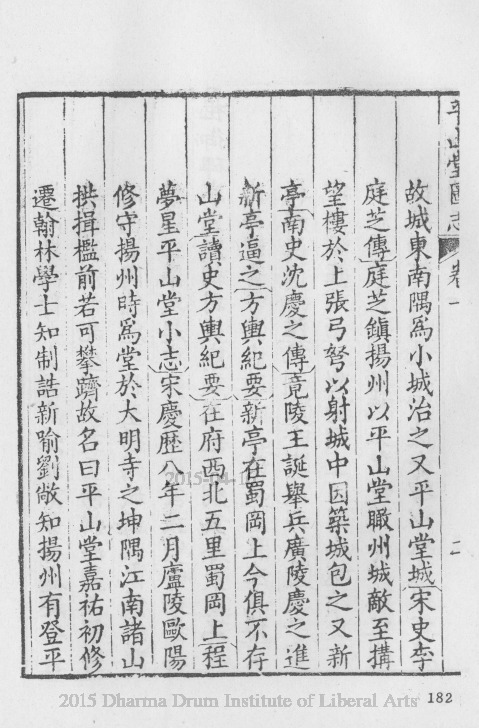 平山堂圖志 卷一 二
故城東南隅爲小城治之又平山堂城宋史李
庭芝傳庭芝鎮揚州以平山堂瞰州城敵至搆
望樓於上張弓弩以射城中因築城包之又新
亭南史沈慶之傳竟陵王誕舉兵廣陵慶之進
新亭逼之方輿紀要新亭在蜀岡上今俱不存
山堂讀史方輿紀要在府西北五里蜀岡上程
夢星平山堂小志宋慶歷八年二月廬陵歐陽
修守揚州時爲堂於大明寺之坤隅江南諸山
拱揖檻前若可攀躋故名曰平山堂嘉祐初修
遷翰林學士知制誥新喻劉敞知揚州有登平
2015 Dharma Drum Institute of Liberal Arts
182